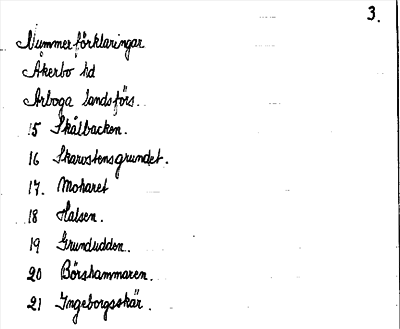 3.
Nummerförklaringar
Åkerbo hd
Arboga landsförs.
15 Skålbacken.
16 Skarvstensgrundet.
17. Moharet
18 Halsen.
19 Grundudden.
20 Börshammaren.
21 Ingeborgsskär.